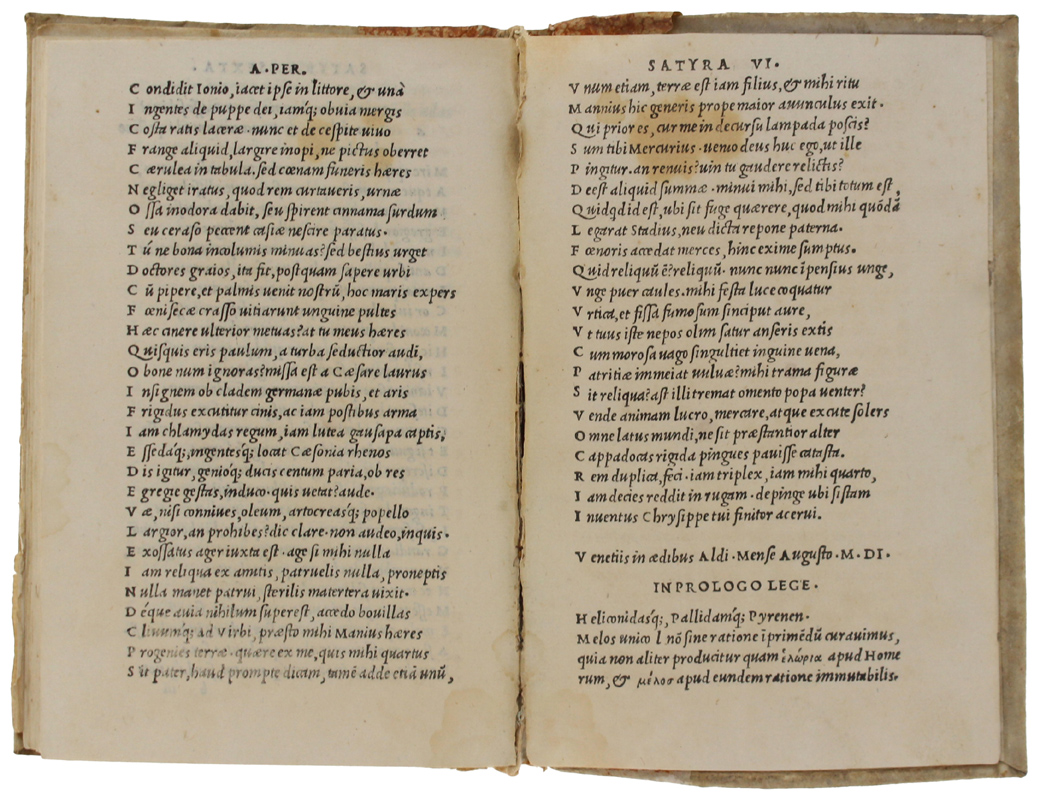 A. PER.
C ondidit Ionio, iacet ipse in littore, & unà
I ngentes de puppe dei, iamq; obuia mergis
C osta ratis laceræ. nunc et de cespite uiuo
F range aliquid, largire inopi, ne pictus oberret
C ærulea in tabula. sed cœnam funeris hæres
N egliget iratus, quod rem curtaueris, urnæ
O ssa inodora dabit, seu spirent cinnama surdum
S eu ceraso peccent casiæ nescire paratus.
T ú ne bona incolumis minuas? sed bestius urget
D octores graios, ita fit, postquam sapere urbi
C ũ pipere, et palmis uenit nostrũ, hoc maris expers
F œnisecæ crasso uitiarunt unguine pultes
H æc cinere ulterior metuas? at tu meus hæres
Q uisquis eris paulum, a turba seductior audi,
O bone num ignoras? missa est a Cæsare laurus
I nsignem ob cladem germanæ pubis, et aris
F rigidus excutitur cinis, ac iam postibus arma
I am chlamydas regum, iam lutea gausapa captis,
E ssedaq;, ingentesq; locat Cæsonia rhenos
D is igitur, genioq; ducis centum paria, ob res
E gregie gestas, induco. quis uetat? aude.
V æ, nisi conniues, oleum, artocreasq; popello
L argior, an prohibes? dic clare. non audeo, inquis.
E xossatus ager iuxta est. age si mihi nulla
I am reliqua ex amitis, patruelis nulla, proneptis
N ulla manet patrui, sterilis matertera uixit.
D éque auia nihilum superest, accedo bouillas
C liuumq; ad Virbi, præsto mihi Manius hæres
P rogenies terræ. quære ex me, quis mihi quartus
S it pater, haud prompte dicam, tamē adde etiā unũ,
SATYRA VI.
V num etiam, terræ est iam filius, & mihi ritu
M annius hic generis prope maior auunculus exit.
Q ui prior es, cur me in decursu lampada poscis?
S um tibi Mercurius. uenio deus huc ego, ut ille
P ingitur. an renuis? uin tu gaudere relictis?
D eest aliquid summæ. minui mihi, sed tibi totum est,
Q uidqd id est, ubi sit fuge quærere, quod mihi quōdā
L egarat Stadius, neu dicta repone paterna.
F œnoris accedat merces, hinc exime sumptus.
Q uid reliquũ ē? reliquũ. nunc nunc īpensius unge,
V nge puer caules. mihi festa luce coquatur
V rtica, et fissa fumosum sinciput aure,
V t tuus iste nepos olim satur anseris extis
C um morosa uago singultiet inguine uena,
P atritiæ immeiat uuluæ? mihi trama figuræ
S it reliqua? ast illi tremat omento popa uenter?
V ende animam lucro, mercare, atque excute solers
O mne latus mundi, ne sit præstantior alter
C appadocas rigida pingues pauisse catasta.
R em duplica, feci. iam triplex, iam mihi quarto,
I am decies reddit in rugam. depinge ubi sistam
I nuentus Chrysippe tui finitor acerui.
V enetiis in ædibus Aldi. Mense Augusto. M. DI.
IN PROLOGO LEGE.
H eliconidasq;, Pallidamq; Pyrenen.
M elos unico l nō sine ratione ī primēdũ curauimus,
quia non aliter producitur quam ἑλώρια apud Home
rum, & μέλοσ apud eundem ratione immutabilis.